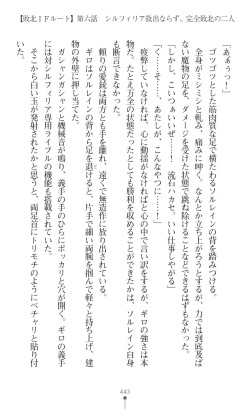 【敗北ＩＦルート】第六話　シルフィリア救出ならず。完全敗北の二人
「あぁっっ！」
　ゴツゴツとした筋肉質な足で横たわるソルレインの背を踏みつける。
　全身がミシミシと軋み、痛みに苦しみ、なんとか立ち上がろうとするが、力では到底及ばない魔物の足を、ダメージを受けた状態で跳ね除けることなどできるはずもなかった。
「しかし、こいつぁいいぜ…！　流石ハカセ。いい仕事しやがる」
「くっ…そ、だが、こんなやつに……！」
　疲弊していなければ、心に動揺がなければと心の中で言い訳するが、ギロの強さは本物だ。たとえ万全の状態だったとしても勝利を収めることができたかは、ソルレイン自身も断言できない。
　頼りの愛銃は両方とも手を離れ、遠くで無造作に放り出されている。
　ギロはソルレインの背から足を退けると、片手で細い両腕を掴んで軽々と持ち上げ、建物の外壁に押し当てた。
　ガシャンガシャンと機械音が鳴り、義手の手のひらにポッカリと穴が開く。ギロの義手には対シルフィリア専用ライフルの機能も搭載されていた。
　そこから白い玉が発射されたかと思うと、両足首にトリモチのようにベチャリと貼り付
443